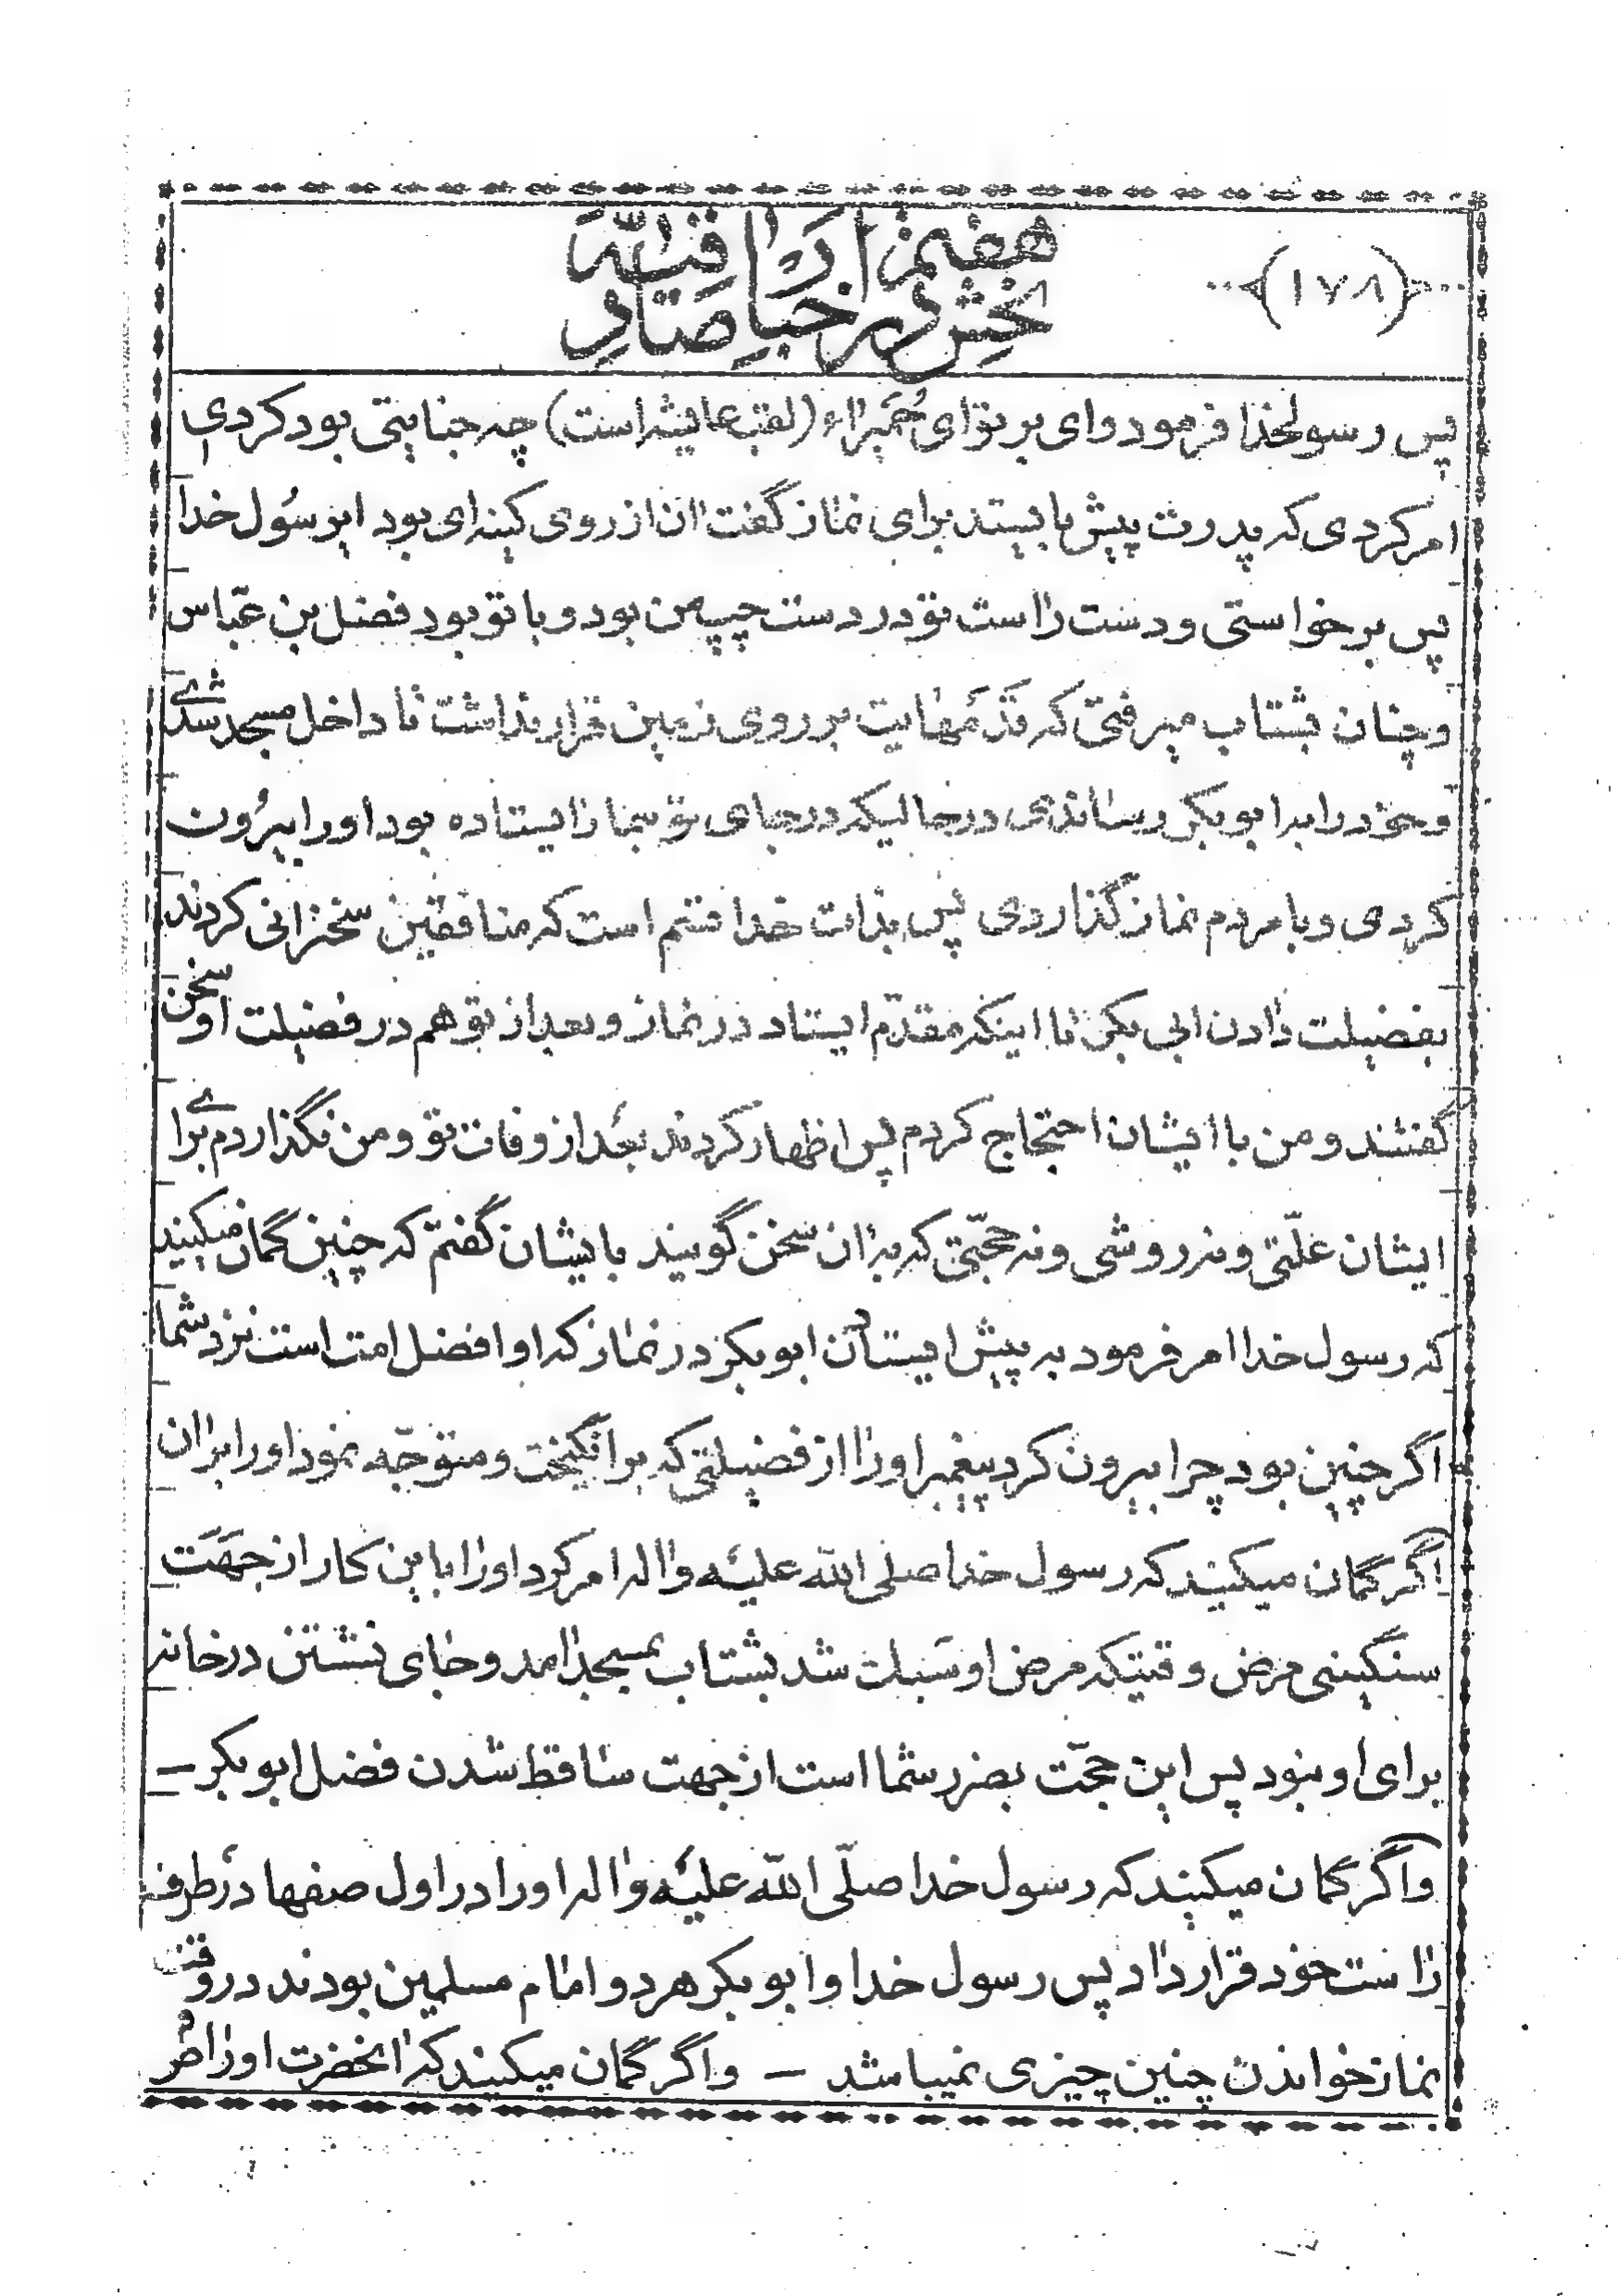 (۱۷۸)
بخش هفتم در اخبار
پس رسولخدا فرمود وای بر تو ای حُمَیراء (لقب عایشه است) چه جنایتی بود کردی
امر کردی که پدرت پیش بایستد برای نماز گفت ان از روی کینه‌ای بود ایرسُول خدا
پس برخواستی و دست راست تو در دست چپ من بود و با تو بود فضل بن عبّاس
و چنان بشتاب میرفتی که قدَمهایت بر روی زمین قرار نداشت تا داخل مسجد شدی
و خود را بر ابوبکر رساندی در حالیکه در جای تو بنماز ایستاده بود او را بیرُون
کردی و با مردم نماز گذاردی پس بذات خدا قسم است که منافقین سخنرانی کردند
بفضیلت دادن ابی بکر تا اینکه مقدّم ایستاد در نماز و بعد از تو هم در فضیلت او سخن
گفتند و من با ایشان احتجاج کردم پس اظهار کردند بعَد از وفات تو و من نگذاردم برای
ایشان علّتی و نه روشی و نه حجّتی که بدان سخن گویند بایشان گفتم که چنین گمان میکنید
که رسول خدا امر فرمود به پیش ایستادن ابوبکر در نماز که او افضل امت است نزد شما
اگر چنین بود چرا بیرون کرد پیغمبر او را از فضیلتی که برانگیخت و متوجّه نمود او را بران
اگر گمان میکنید که رسول خدا صلی الله علیه و اله امر کرد او را باین کار از جهَت
سنگینی مرض وقتیکه مرض او سَبک شد بشتاب بمسجد امد و جای نشستن در خانه
برای او نبود پس این حجّت بضرر شما است از جهت ساقط شدن فضل ابوبکر –
و اگر گمان میکنید که رسول خدا صلّی الله علیه و اله او را در اول صفها در طرف
راست خود قرار داد پس رسول خدا و ابوبکر هر دو امام مسلمین بودند در وقت
نماز خواندن چنین چیزی نمیباشد – و اگر گمان میکنید که انحضرت او را امر